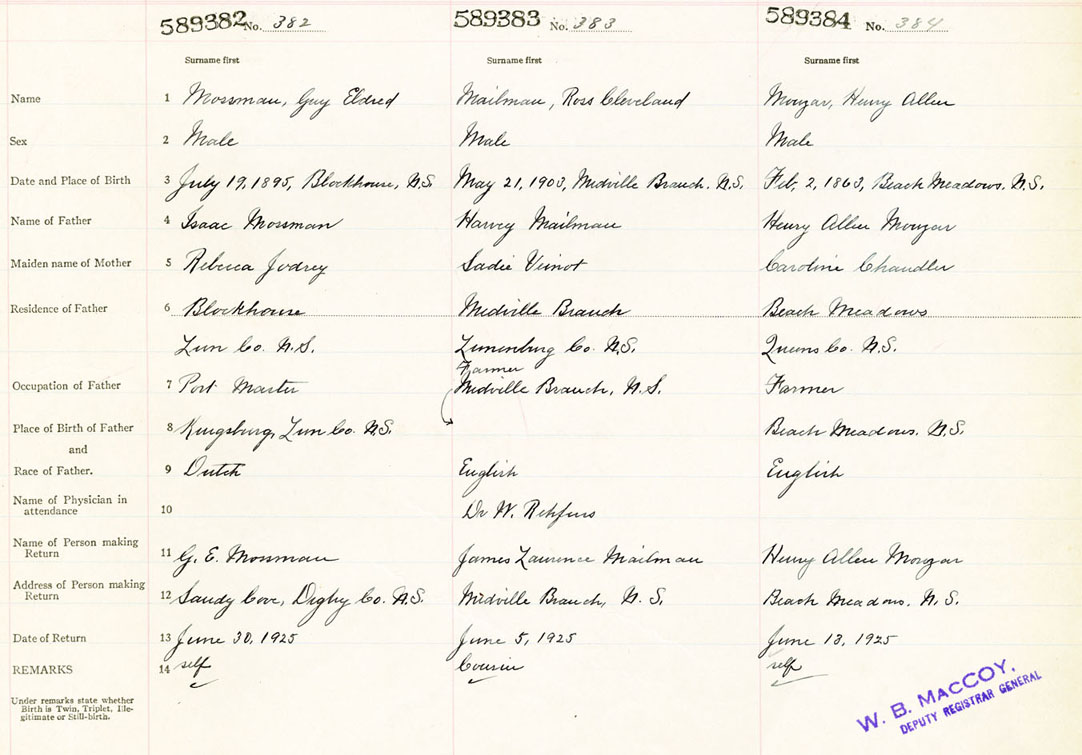 589382 No. 382 589383 No. 383 589384 No. 384
Surname first Surname first Surname first
Name 1 Mossman, Guy Eldred Mailman, Ross Cleveland Mouzar, Henry Allen
Sex 2 Male Male Male
Date and Place of Birth 3 July 19, 1895, Blockhouse, N.S. May 21, 1903, Midville Branch. N.S. Feb. 2, 1863, Beach Meadows. N.S.
Name of Father 4 Isaac Mossman Harvey Mailman Henry Allen Mouzar
Maiden name of Mother 5 Rebecca Jodrey Sadie Veinot Caroline Chandler
Residence of Father 6 Blockhouse Midville Branch Beach Meadows
Lun Co. N.S. Lunenburg Co. N.S. Queens Co. N.S.
Farmer
Occupation of Father 7 Post Master Midville Branch, N.S. Farmer
Place of Birth of Father 8 Kingsburg, Lun Co. N.S. Beach Meadows. N.S.
and
Race of Father. 9 Dutch English English
Name of Physician in
attendance 10 Dr W. Rehfuss
Name of Person making
Return 11 G. E. Mossman James Laurence Mailman Henry Allen Mouzar
Address of Person making
Return 12 Sandy Cove, Digby Co. N.S. Midville Branch, N.S. Beach Meadows. N.S.
Date of Return 13 June 30, 1925 June 5, 1925 June 13, 1925
REMARKS 14 self Cousin self
Under remarks state whether
Birth is Twin, Triplet, Ille-
gitimate or Still-birth.
W. B. MACCOY,
DEPUTY REGISTRAR GENERAL